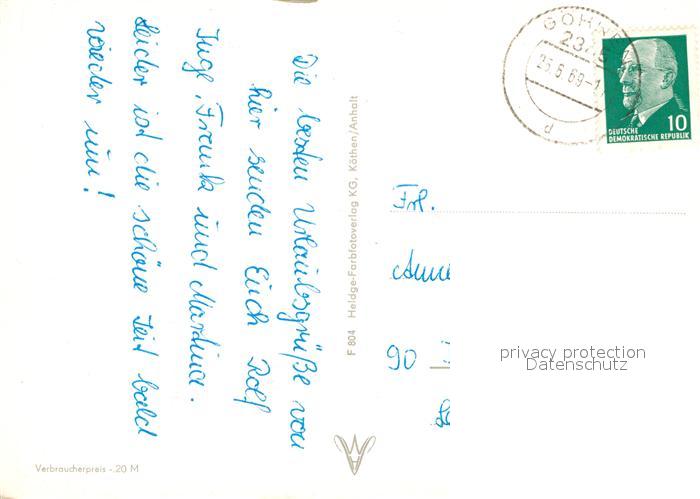 Die besten Urlaubsgrüße von
hier senden Euch Rolf
Inge, Frank und Martina.
Leider ist die schöne Zeit bald
wieder um!
Verbraucherpreis -.20 M
F 804 Heldge-Farbfotoverlag KG, Köthen/Anhalt
GÖHREN
25.6.69-1
d
10
DEUTSCHE
DEMOKRATISCHE REPUBLIK
Frl.
90
privacy protection
Datenschutz